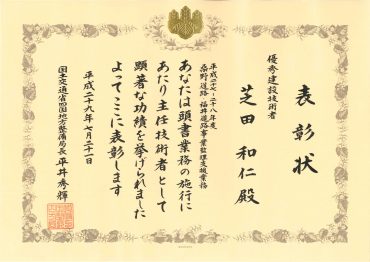 表彰状
優秀建設技術者
芝田和仁殿
平成二十七-二十八年度
桑野道路・福井道路事業監理支援業務
あなたは頭書業務の施行に
あたり主任技術者として
顕著な功績を挙げられました
よってここに表彰します
平成二十九年七月二十一日
国土交通省四国地方整備局長平井秀輝